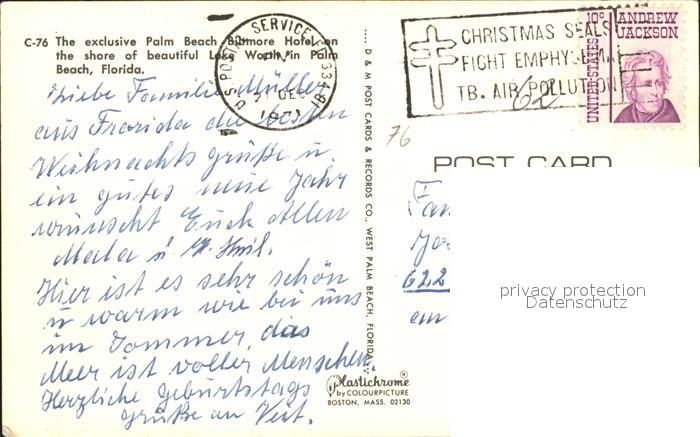 C-76 The exclusive Palm Beach Biltmore Hotel on
the shore of beautiful Lake Worth in Palm
Beach, Florida.
Liebe Familie Müller
aus Frorida die besten
Weihnachts grüße u.
ein gutes neue Jahr
wünscht Euch Allen
Mala u.
Hier ist es sehr schön
u warm wie bei uns
im Sommer, das
Meer ist voller Menschen.
Herzliche Geburtstags
Grüße an Veit.
U.S. POSTAL SERVICE, FL 334
21 DEC
.... D & M POST CARDS & RECORDS CO., WEST PALM BEACH, FLORIDA
Plastichrome®
by COLOURPICTURE
BOSTON, MASS. 02130
CHRISTMAS SEALS
FIGHT EMPHYSEMA
TB. AIR POLLUTION
62
10c ANDREW
JACKSON
UNITED STATES
76
POST CARD
Fam
622
privacy protection
Datenschutz